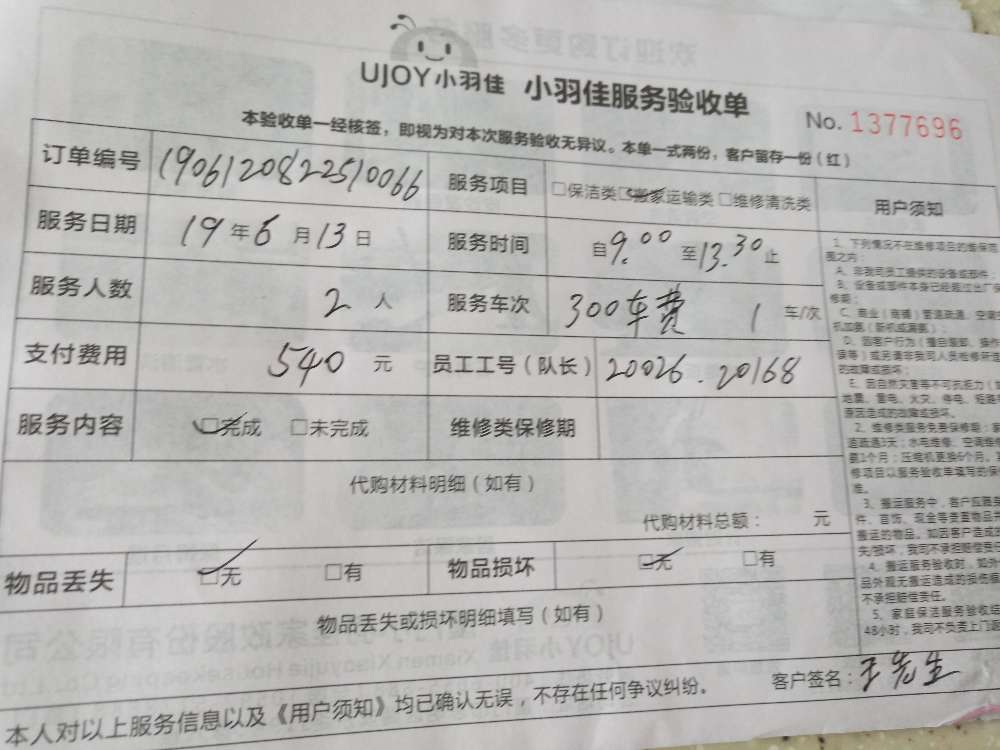 UJOY小羽佳 小羽佳服务验收单
No. 1377696
本验收单一经核签，即视为对本次服务验收无异议。本单一式两份，客户留存一份（红）
订单编号 1906120822510066 服务项目 □保洁类 □搬家运输类 □维修清洗类 用户须知
服务日期 19年6月13日 服务时间 自9.00至13.30止
服务人数 2人 服务车次 300车费 1 车/次
支付费用 540元 员工工号（队长） 20026.20168
服务内容 □完成 □未完成 维修类保修期
代购材料明细（如有）
代购材料总额： 元
物品丢失 □无 □有 物品损坏 □无 □有
物品丢失或损坏明细填写（如有）
本人对以上服务信息以及《用户须知》均已确认无误，不存在任何争议纠纷。
客户签名：王先生
1、下列情况不在维修项目的维保范
围之内：
A、非我司员工提供的设备或部件；
B、设备或部件本身已经超过出厂保
修期；
C、商业（商铺）管道疏通，空调
机加氨（新机或漏氨）；
D、因客户行为（擅自装卸、操作
误等）或另请非我司人员检修所
的故障或损坏；
E、因自然灾害等不可抗拒力（
地震、雷电、火灾、停电、短路
原因造成的故障或损坏。
2、维修类服务免费保修期：
道疏通3天；水电维修、空调维
氨1个月；压缩机更换6个月。
修项目以服务验收单填写的保
准。
3、搬运服务中，客户应跟
件、首饰、现金等贵重物品
搬运的物品。如因客户造成
失/损坏，我司不承担赔偿责
4、搬运服务验收时，如外
品外观无搬运造成的损伤
不承担赔偿责任。
5、家庭保洁服务验收
48小时，我司不负责上门返